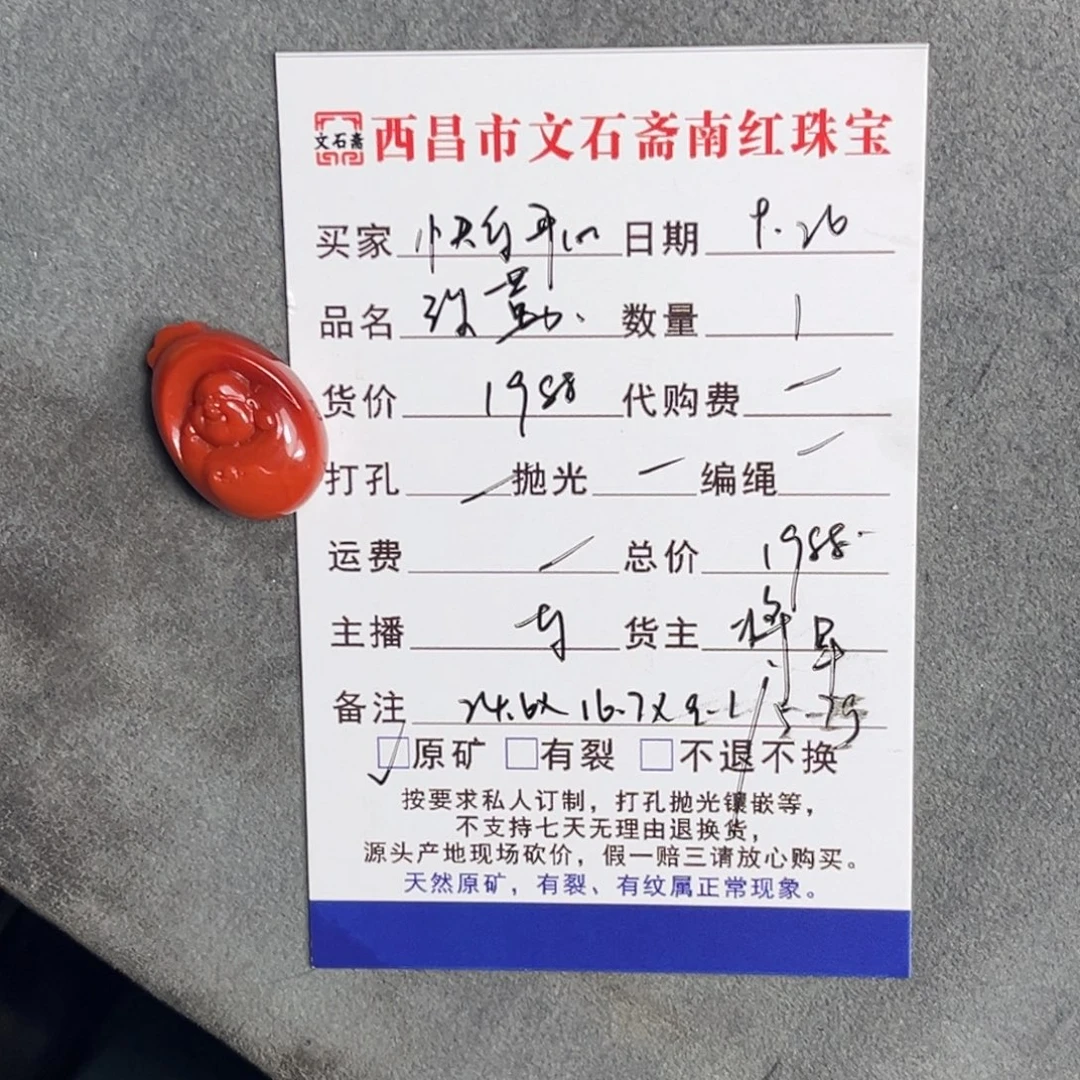 文石斋 西昌市文石斋南红珠宝
买家 日期 9.26
品名 数量 1
货价 1988 代购费 一
打孔 抛光 一 编绳 一
运费 总价 1988.
主播 货主
备注 24.6x16.7x9.1
原矿 有裂 不退不换
按要求私人订制，打孔抛光镶嵌等，
不支持七天无理由退换货，
源头产地现场砍价，假一赔三请放心购买。
天然原矿，有裂、有纹属正常现象。